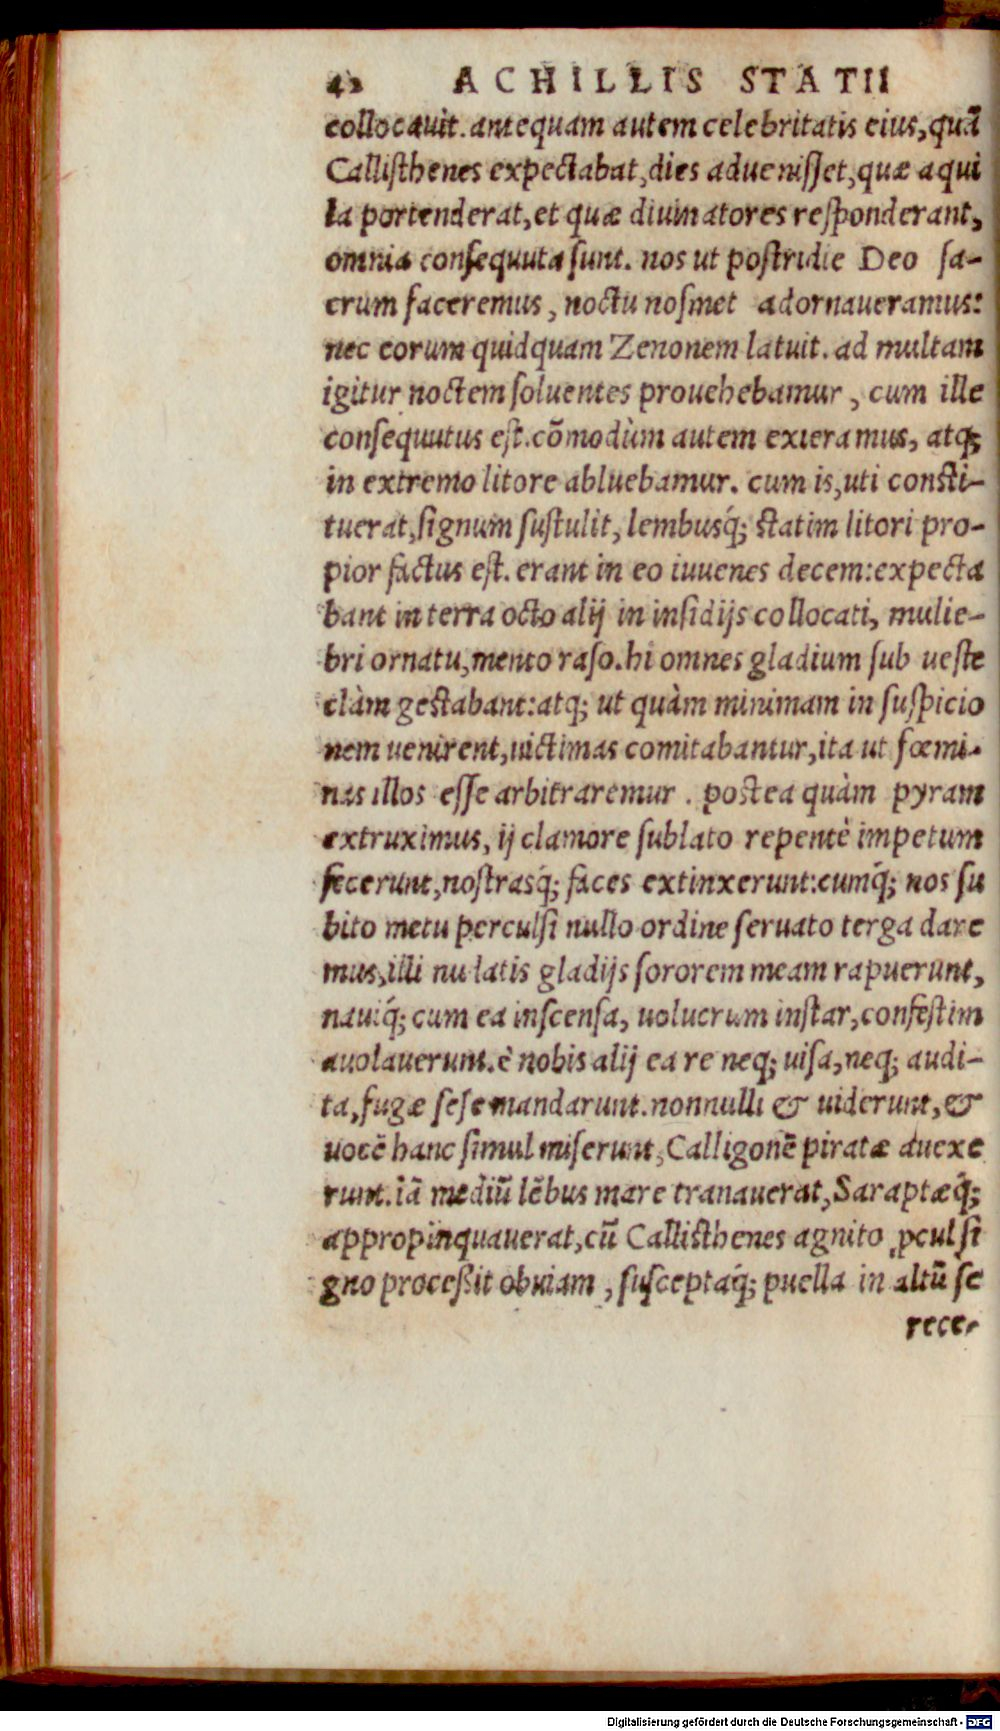 42 ACHILLIS STATII
collocauit. antequam autem celebritatis eius, quã
Callisthenes expectabat, dies aduenisset, quæ aqui
la portenderat, et quæ diuinatores responderant,
omnia consequuta sunt. nos ut postridie Deo sa-
crum faceremus, noctu nosmet adornaueramus:
nec eorum quidquam Zenonem latuit. ad multam
igitur noctem soluentes prouehebamur, cum ille
consequutus est. cõmodùm autem exieramus, atq;
in extremo litore abluebamur. cum is, uti consti-
tuerat, signum sustulit, lembusq́; statim litori pro-
pior factus est. erant in eo iuuenes decem: expecta
bant in terra octo alij in insidijs collocati, mulie-
bri ornatu, mento raso. hi omnes gladium sub ueste
clàm gestabant: atq; ut quàm minimam in suspicio
nem uenirent, uictimas comitabantur, ita ut fœmi-
nas illos esse arbitraremur. postea quàm pyram
extruximus, ij clamore sublato repentè impetum
fecerunt, nostrasq́; faces extinxerunt: cumq́; nos su
bito metu perculsi nullo ordine seruato terga dare
mus, illi nudatis gladijs sororem meam rapuerunt,
nauiq́; cum ea inscensa, uolucrum instar, confestim
auolauerunt. è nobis alij ea re neq; uisa, neq; audi-
ta, fugæ sese mandarunt. nonnulli & uiderunt, &
uocẽ hanc simul miserunt, Calligonẽ piratæ auexe
runt. iã mediũ lẽbus mare tranauerat, Saraptæq́;
appropinquauerat, cũ Callisthenes agnito ꝓcul si
gno proceßit obuiam, susceptaq́; puella in altũ se
rece-
Digitalisierung gefördert durch die Deutsche Forschungsgemeinschaft - DFG